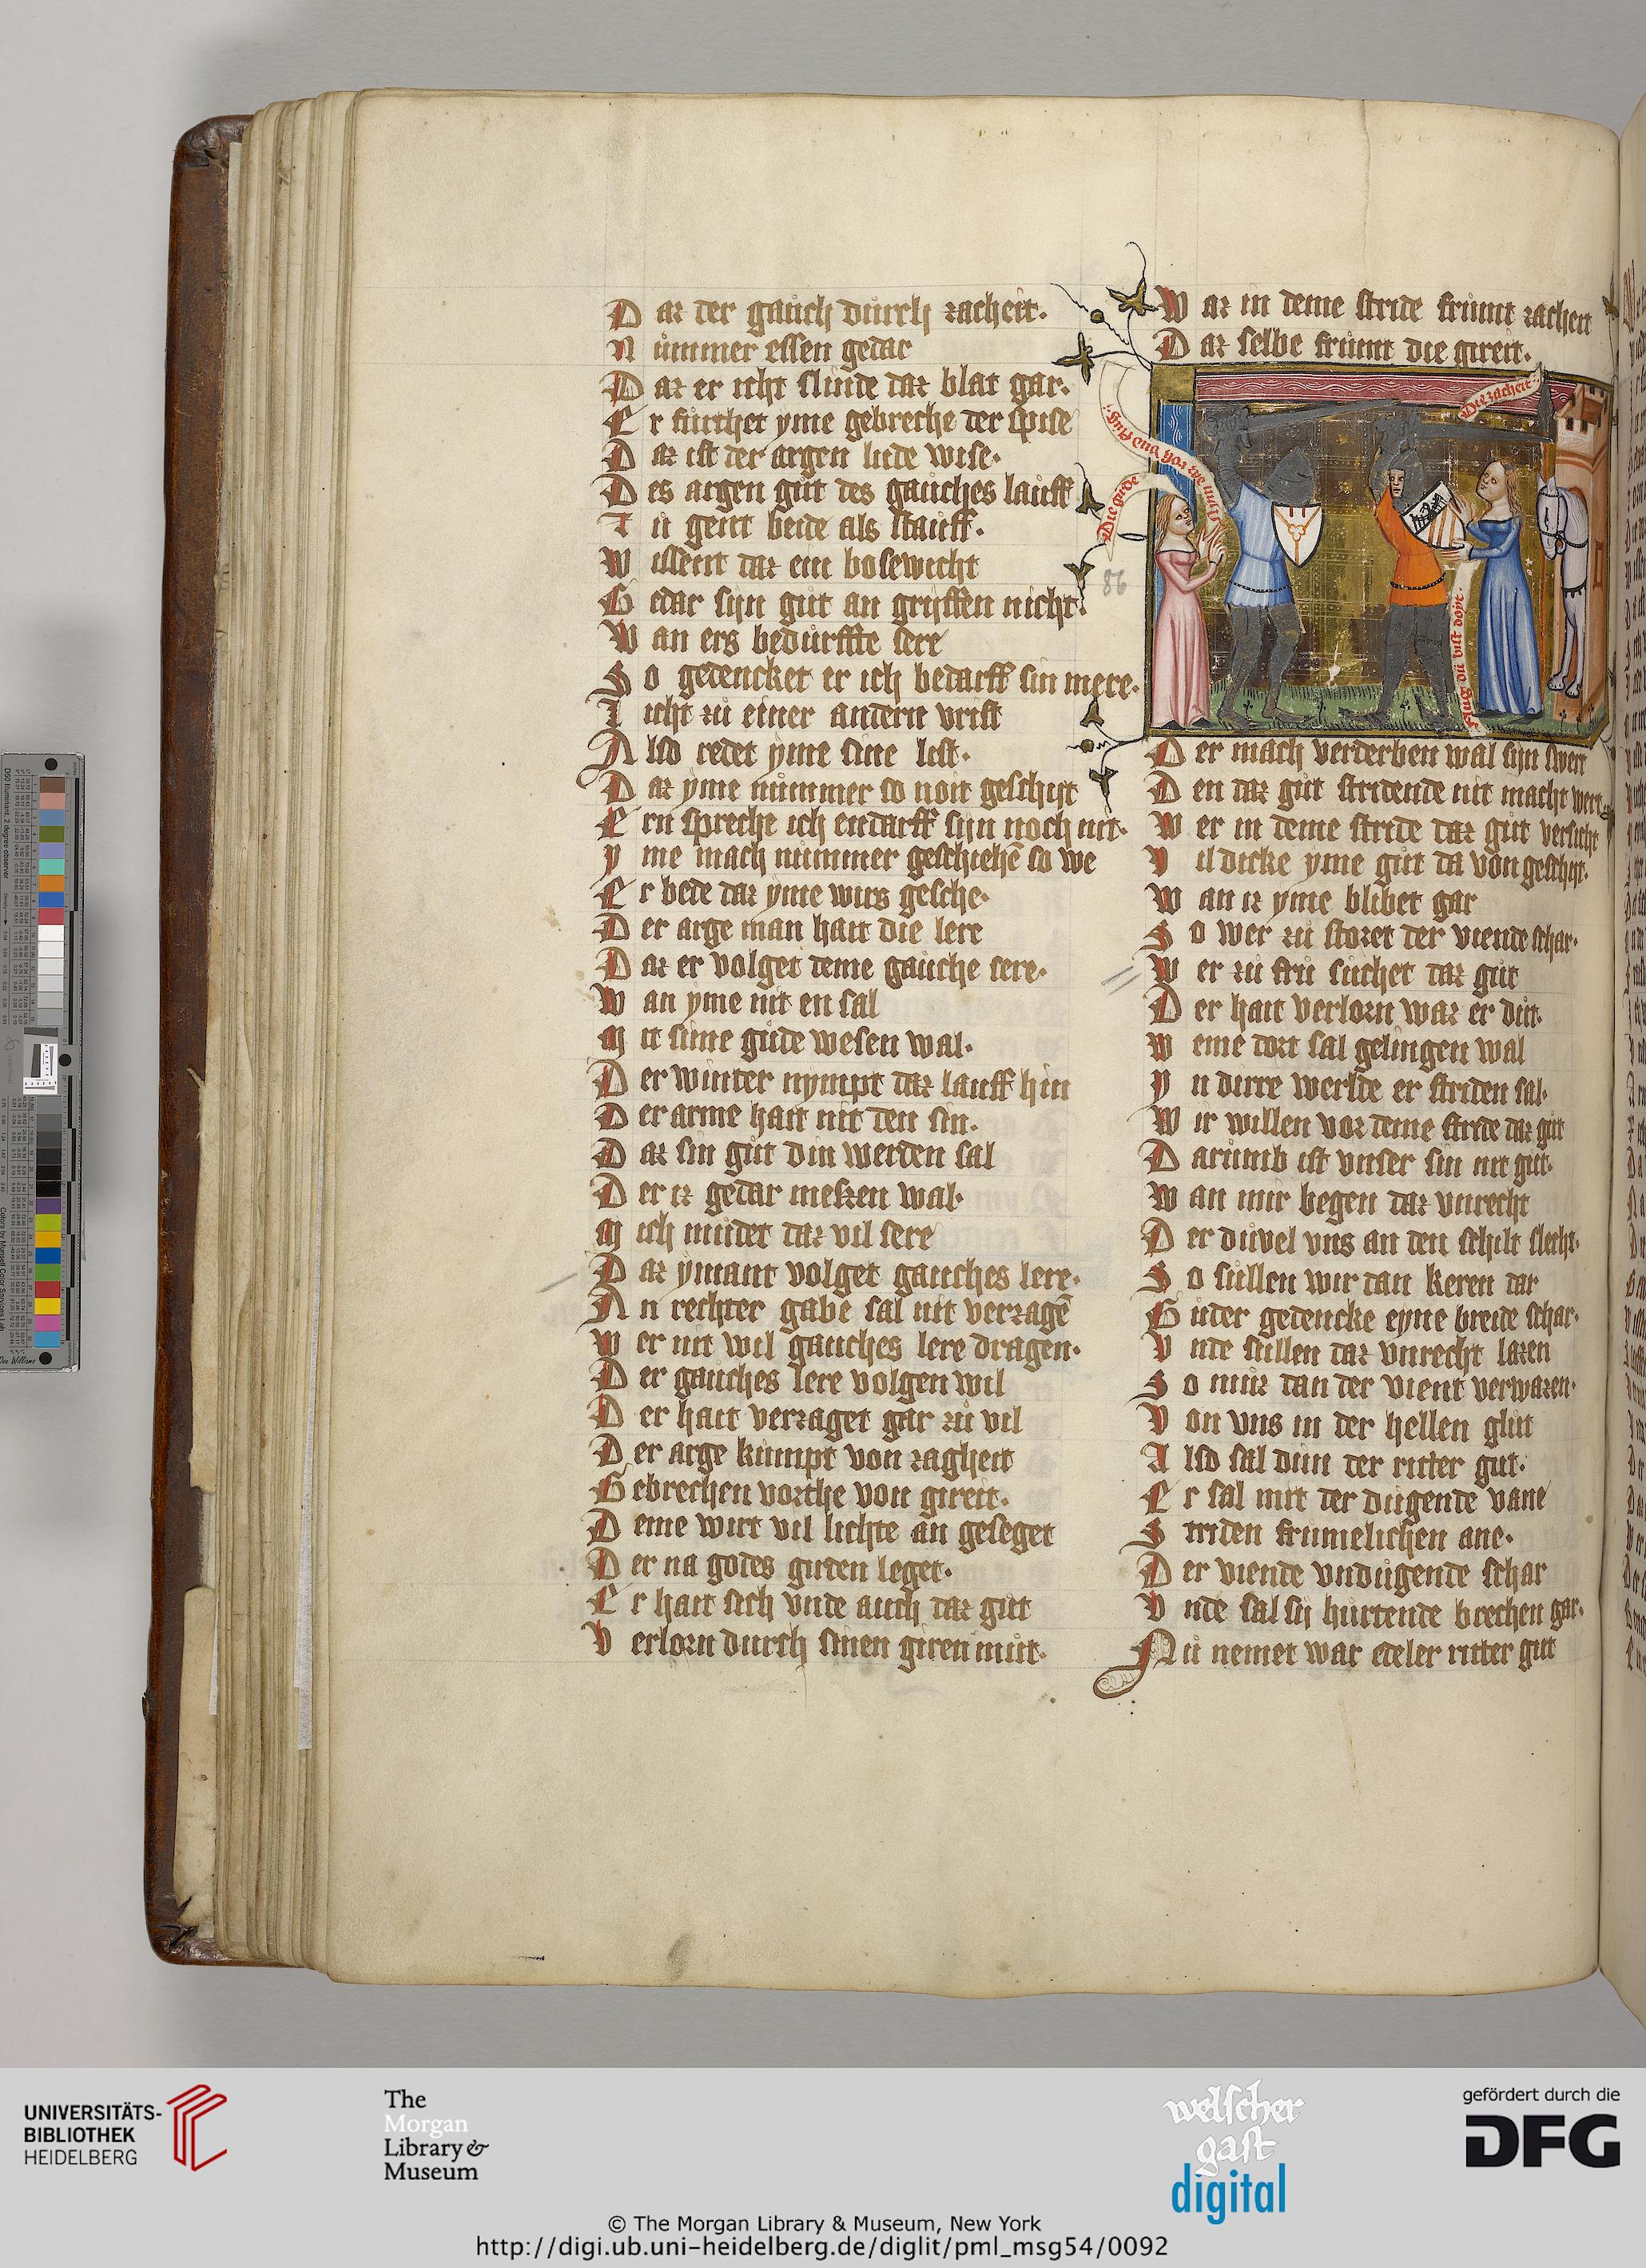 Daz der gauch durch zacheit.
Nummer essen gedar
Daz er icht slinde daz blat gar.
Er furchtet yme gebreche der spise
Daz ist der argen lude wise.
Des argen gut des gauches lauff
Tu gent beide als stauff.
Wissent daz ein bosewicht
Gedar syn gut an gryffen nicht.
Wan ers bedurffte sere
So gedencket er ich bedarff sin mere.
Licht zu einer andern vrist
Also redet yme sine list.
Daz yme nummer so noit geschyt
Ern spreche ich endarff syn noch nit.
Yme mach nummer geschiehē so we
Er bede daz yme wirs gesche.
Der arge man hait die lere
Daz er volget deme gauche sere.
Wan yme nit en sal
Mit sime gude wesen wal.
Der winter nympt daz lauff hin
Der arme hait nit den sin.
Daz sin gut din werden sal
Der iz gedar meszen wal.
Mich mudet daz vil sere
Daz ymant volget gauches lere.
An rechter gabe sal nit verzagē
Wer nit wil gauches lere dragen.
Der gauches lere volgen wil
Der hait verzaget gar zu vil
Der arge kumpt von zagheit
Gebrechen vorthe von gireit.
Deme wirt vil lichte an geseget
Der na godes girden leget.
Er hait sich vnde auch daz gut
Verlorn durch sinen giren mut.
Waz in deme stride frumt zacheit
Daz selbe frumt die gireit.
Die zacheit
Die gude
Flug du bist doit
86
Der mach verderben wal syn swert
Den daz gut stridende nit macht wert
Wer in deme stride daz gut versicht
Vil dicke yme gut da von geschyt.
Wan iz yme blibet gar
So wer zu storet der viende schar.
Wer zu fru suchet daz gut
Der hait verlorn waz er dut.
Weme dort sal gelingen wal
Yn dirre werlde er striden sal.
Wir willen vor deme stride daz gut
Darumb ist vnser sin nit gut.
Wan mir begen daz vnrecht
Der duvel vns an den schilt slecht.
So sullen wir dan keren dar
Guder gedencke eyne breide schar.
Vnde sullen daz vnrecht lazen
So muz dan der vient verwazen.
Von vns in der hellen glut
Also sal dun der ritter gut.
Er sal mit der dugende vane
Striden frumelichen ane.
Der viende vndugende schar
Vnde sal sy hurtende brechen gar.
Nu nemet war edeler ritter gut
UNIVERSITÄTS-
BIBLIOTHEK
HEIDELBERG
The
Morgan
Library &
Museum
welscher
gast
digital
gefördert durch die
DFG
© The Morgan Library & Museum, New York
http://digi.ub.uni-heidelberg.de/diglit/pml_msg54/0092